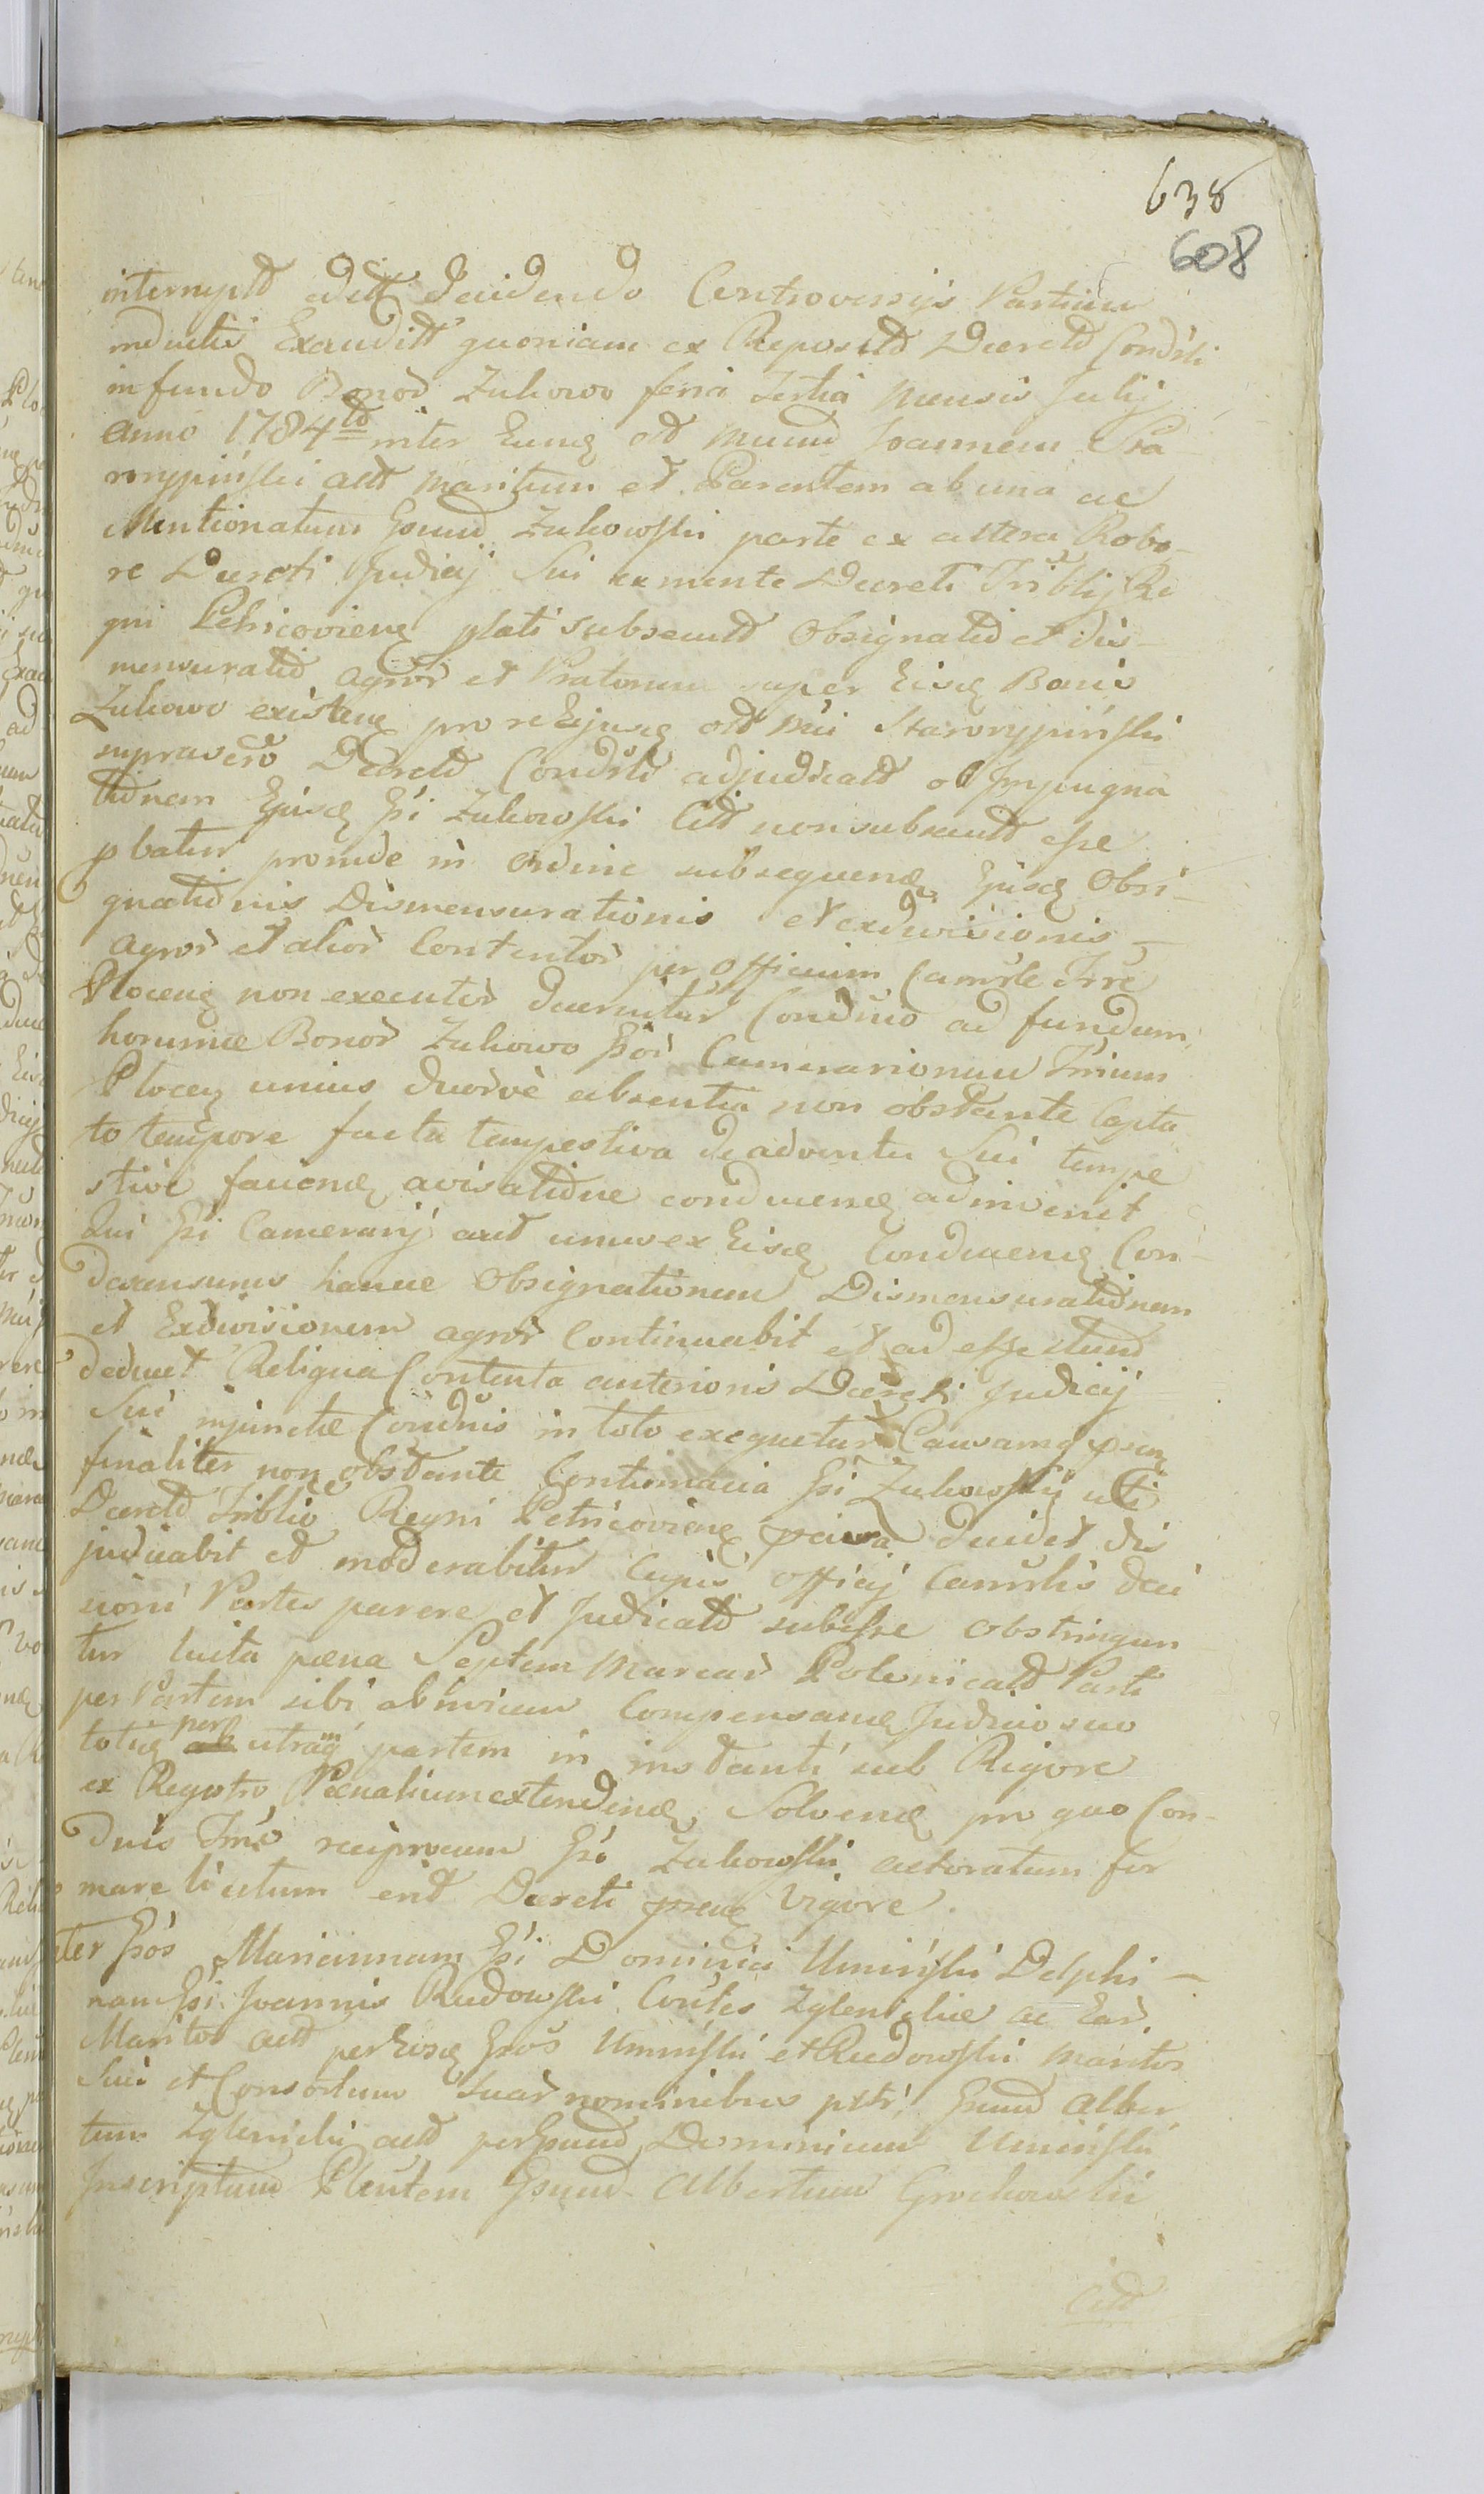 638
608
interruptt edett Decidendo Controversijs Partium
inductis Exauditt quoniam ex Reposittt Decrettt Condsli
in fundo Bonor Zukowo feria Tertia Mensis Julij
Anno 1784tt inter Eumq ott Mumd Joannem Sta
rorypiński att Maritum et Parentem ab una ac
Mentionatum Gsumd Zukowski parte ex altera Robo-
re Decreti Judicij Sui ex mente Decreti Triblij Re
gni Petricovienq plati subsecuttt Obsignattid et Dis-
mensurattid Agror et Pratorum super Eisq Bonis
Zukowo existenq pro re Ejusq ott Mci Starorypiński
supra vero Decrettt Condsli adjudicattt ob Impugna
tionem Ejusq Gsi Zukowski Citt non subsecuttt esse
pbatur proinde in Ordine subsequenq Ejusq Obsi-
gnationis Dismensurationis et exdivisionis -
Agror et alior Contentor per Officium Camrle Trre
Plocenq non executor decernitur Condscio ad fundum
horumce Bonor Zukowo Gsor Camerariorum Trium
Plocenq unius duorve absentia non obstante Capta
to tempore facta tempestiva de adventu Sui tempe
stive faciend avisatione condescend adinvenit
Qui Gsi Camerarij aut unus ex Eisq Condescend Con-
descensurus hancce Obsignationem Dismensurationem
et Exdivisionem agror Continuabit et ad effectumd
deducet Reliqua Contenta anterioris Decreti Judicij
Sui injunctae Condsnis in toto exequetur Causamq psem
finaliter non obstante Contumacia Gsi Zukowski uti
Decrettt Triblio Regni Petricovienq decidet dis
judicabit et moderabitur Cujus officij Camrlis deci
sioni Partes parere et Judicattt subesse obstringun
tur luita paena Septem Marcar Polonicattt Parti
per Partem sibi ab invicem Compensand Judicio suo
totiq per utramq partem in instanti sub Rigore
ex Regestro Paenalium extendend Solvend pro quo Con-
dnis Trno reciprocum Gso Zukowski actoratum for
mare licitum erit Decreti psenq Vigore.
ter Gsos Mariannam Gsi Dominici Umiński Delphi-
nam Gsi Joannis Rudowski Contes Zglenickie ac Ear
Maritos att per Eosq Gsos Umiński et Rudowski Maritos
Sui et Consortum Suar nominibus pttri Gsumd Alber
tum Zglenicki att per Gsumd Dominicum Umiński
Inscriptumd Plentem Gsumd Albertum Grochowski
Citt